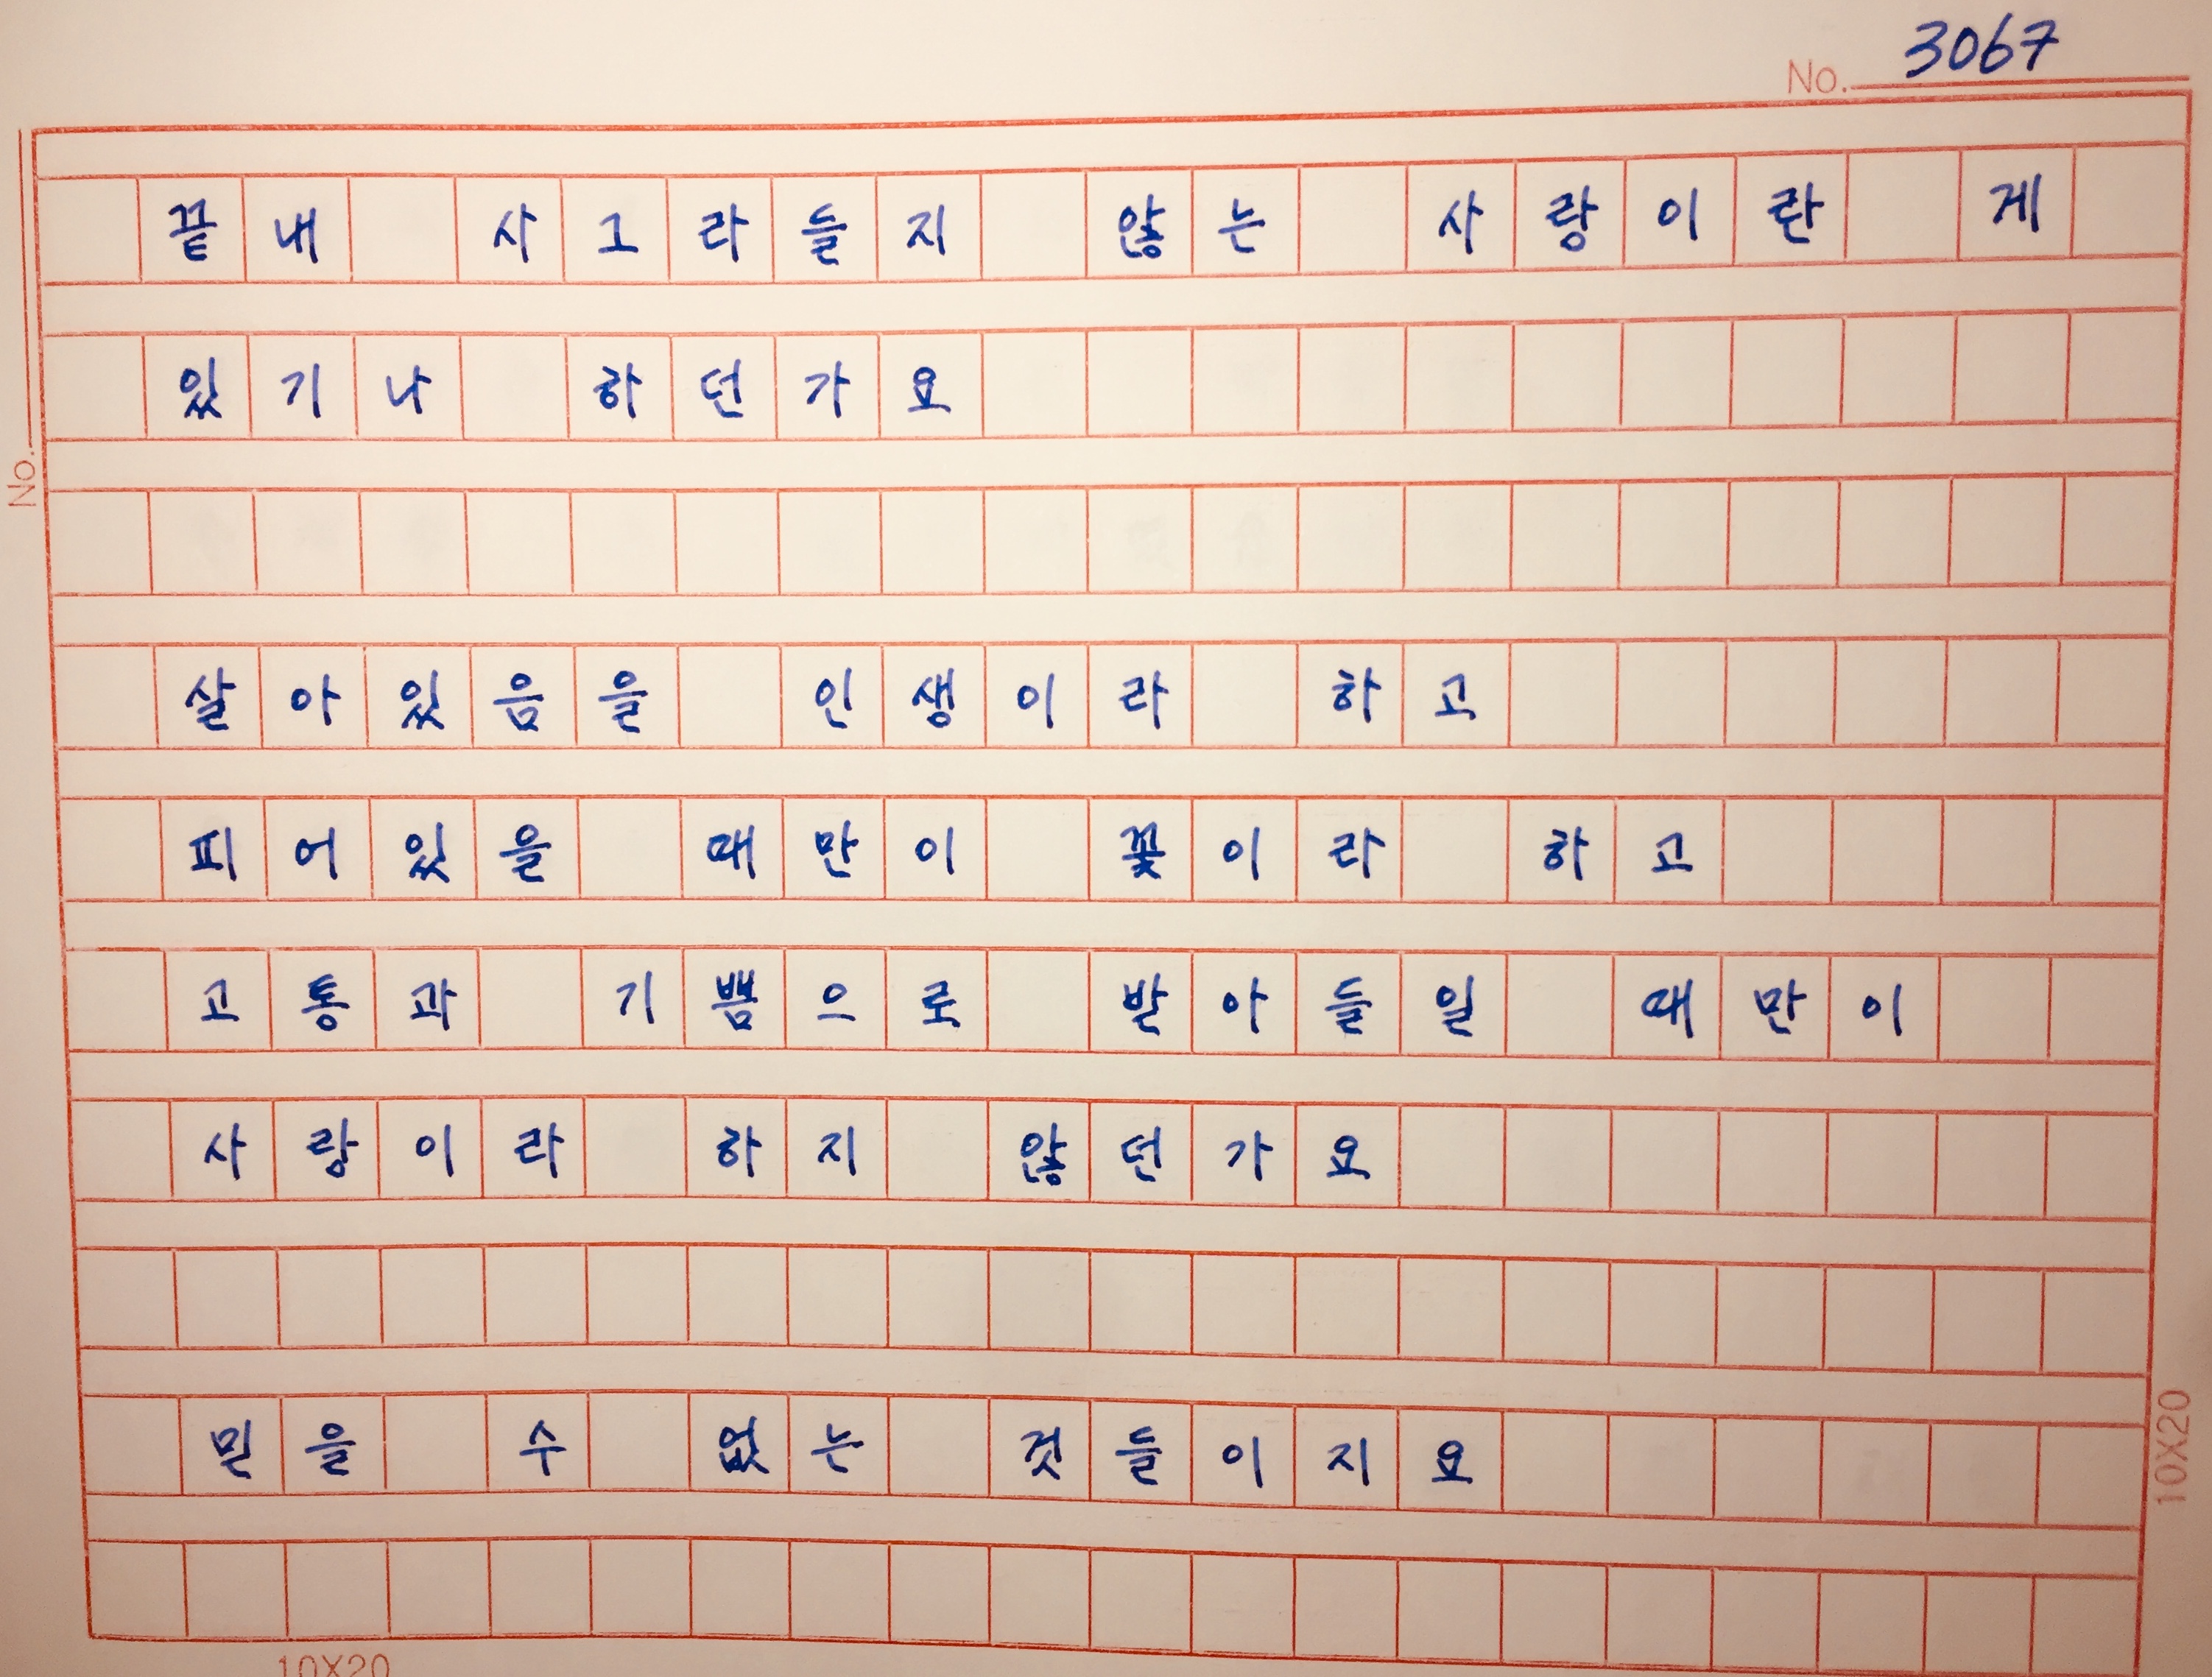 No. 3067
끝내 사그라들지 않는 사랑이란 게
있기나 하던가요
No.
살아있음을 인생이라 하고
피어있을 때만이 꽃이라 하고
고통과 기쁨으로 받아들일 때만이
사랑이라 하지 않던가요
믿을 수 없는 것들이지요
10X20
10X20